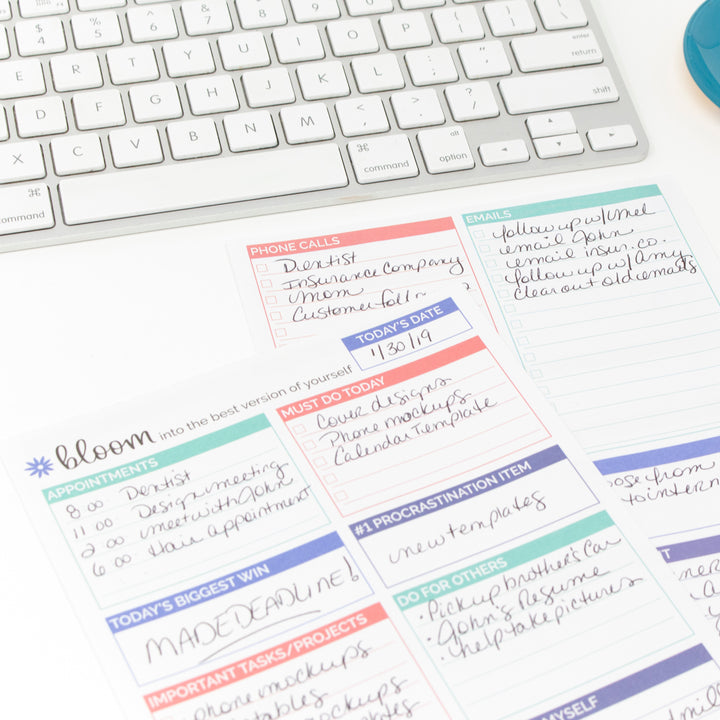 $ 4
% 5
^ 6
& 7
E R T Y U I O P { [ } ] | \
D F G H J K L : ; " ' enter return
X C V B N M < , > . ? / shift
⌘ command
⌘ command
alt option
PHONE CALLS
Dentist
Insurance Company
mom
EMAILS
follow up w/ mel
email John
email insur. co.
follow up w/ Amy
clear out old emails
TODAY'S DATE
1/30/19
bloom into the best version of yourself
APPOINTMENTS
8 00 Dentist
11 00 Design meeting
2 00 meet with John
6 00 Hair appointment
MUST DO TODAY
Cover designs
Phone mockups
Calendar Template
TODAY'S BIGGEST WIN
MADE DEADLINE!
#1 PROCRASTINATION ITEM
new templates
IMPORTANT TASKS/PROJECTS
phone mockups
mockups
DO FOR OTHERS
• Pick up brother's car
• John's Resume
• help take pictures
MYSELF
from
to intern